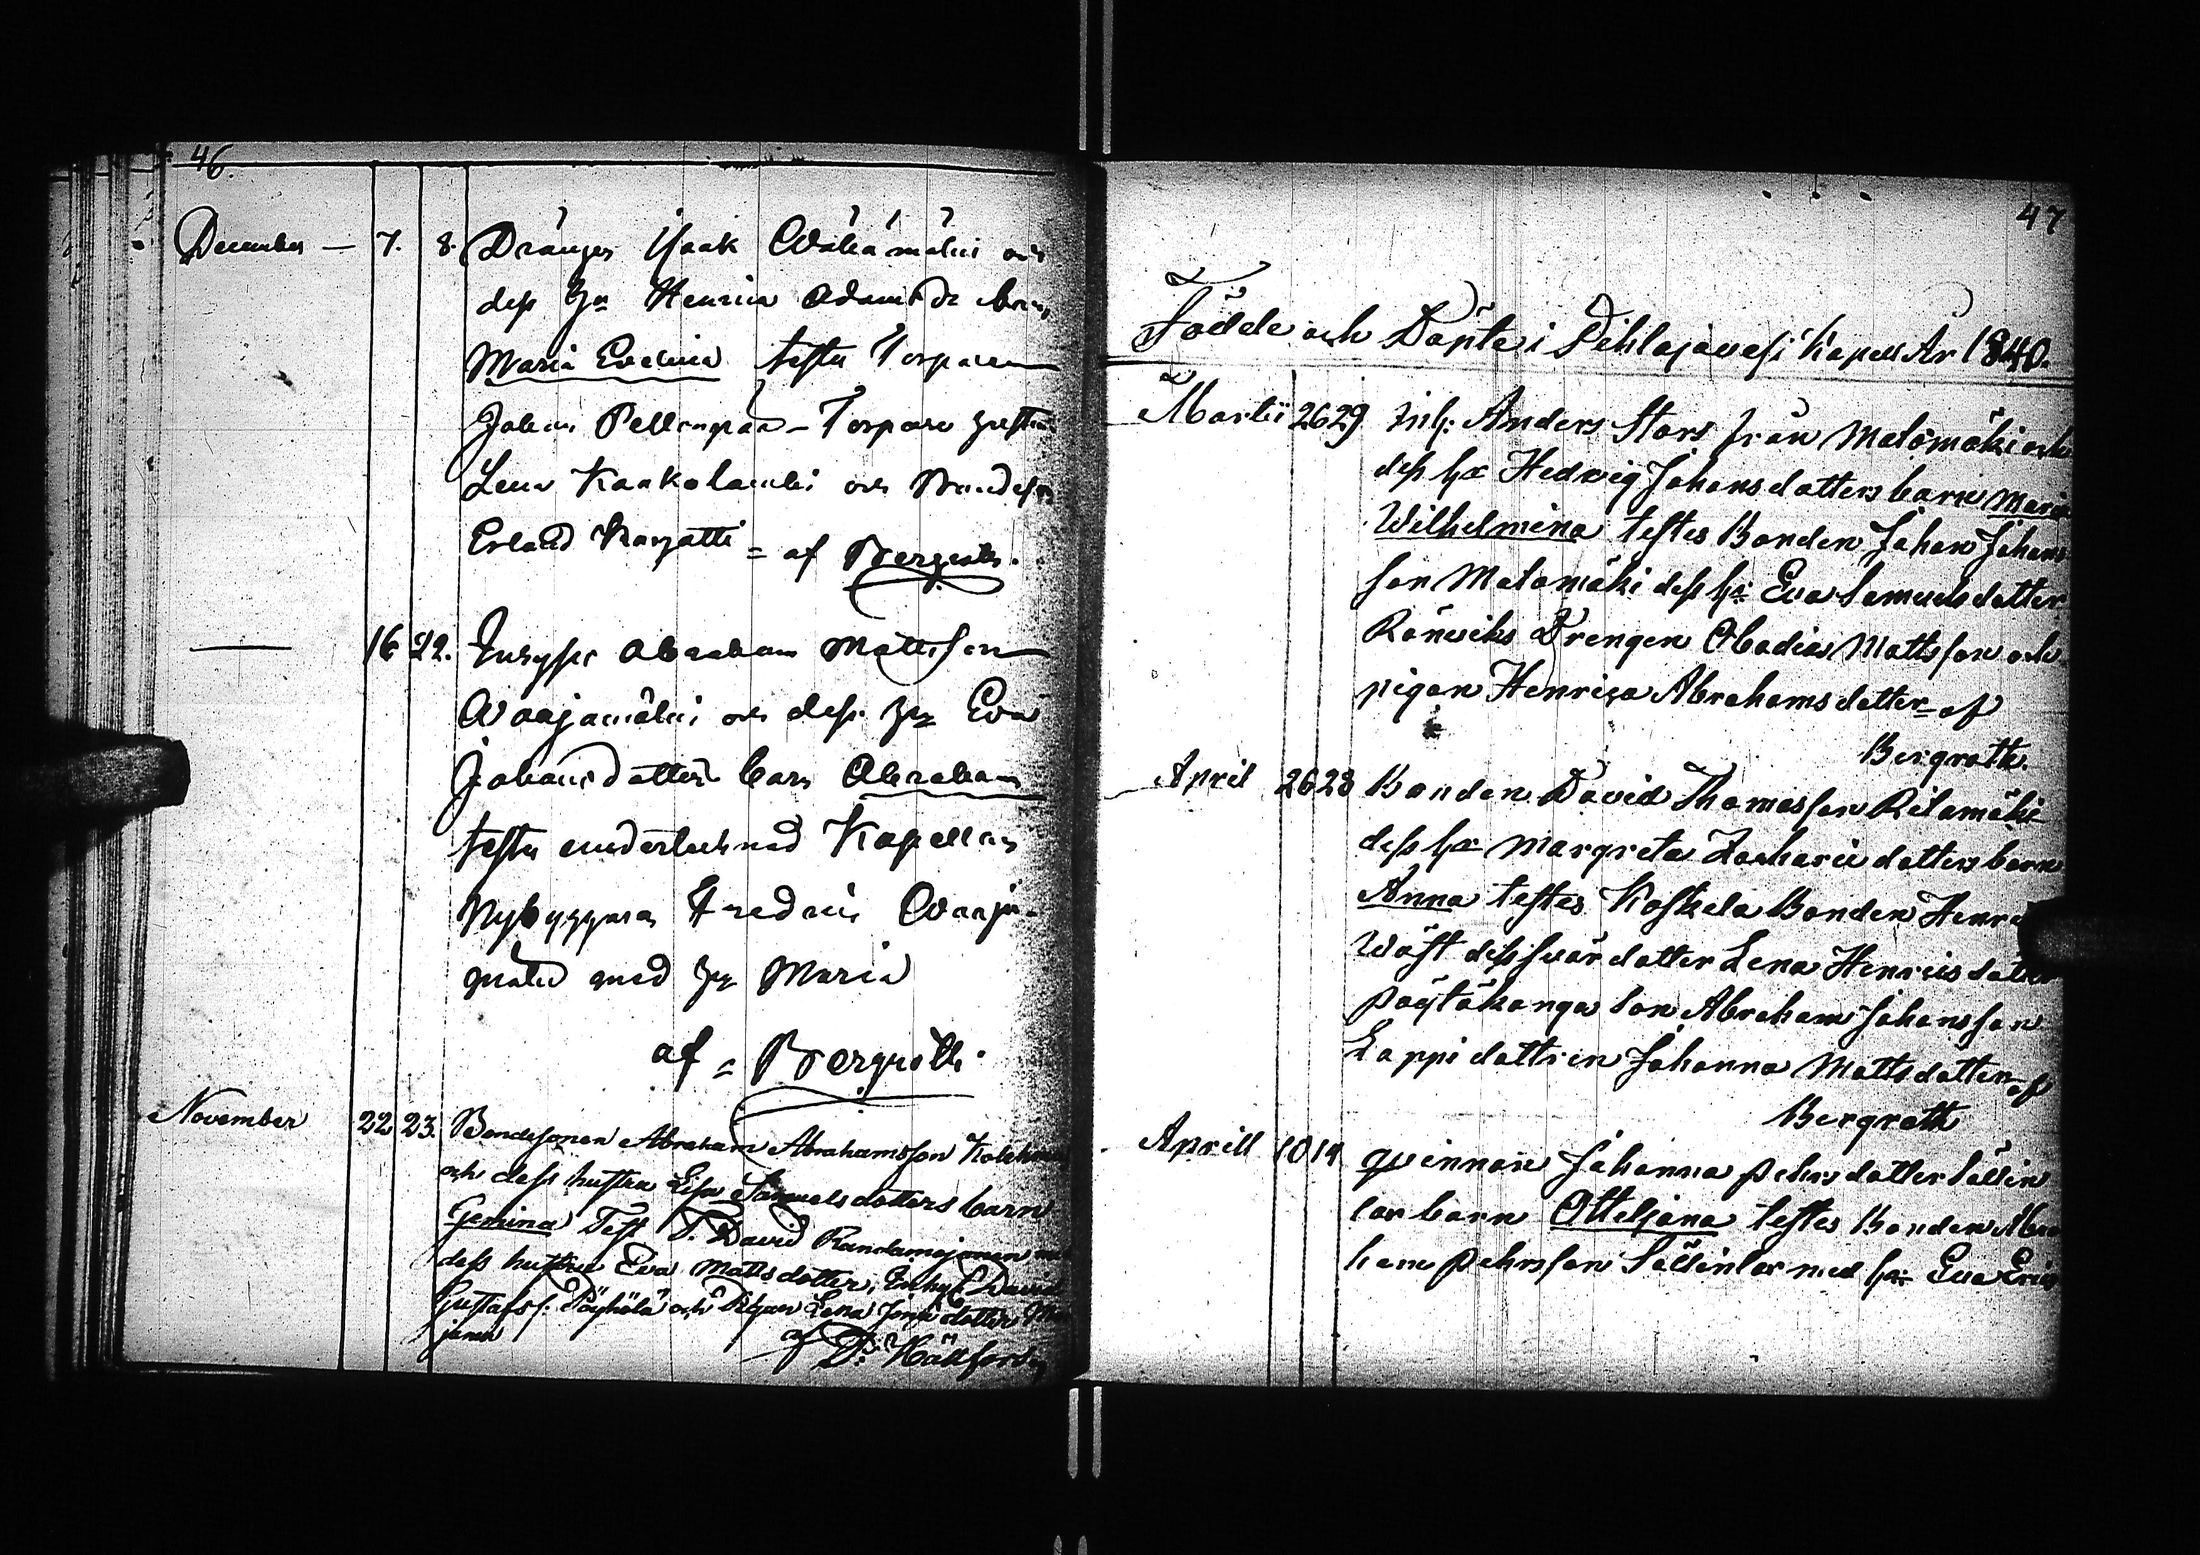 46.
December — 7. 8. Dränger Isaak Wähämäki och
dess hu Henrica Adamsdr barn
Maria Evelina testes Torparen
Johan Pellonpää – Torpare hustru
Lena Kaakolambi och Bondeson
Erland Karjatti = af Bergroth.
— 16 22. Inhyses Abraham Mattsson
Waajamäki och dess hu Eva
Johansdotters barn Abraham
testes undertecknad Kapellan
Nybyggaren Fredric Waaja-
mäki med hu Maria
af = Bergroth.
November 22 23. Bondesonen Abraham Abrahamsson
och dess hustru Lisa Samuelsdotters barn
Gemina Test. T. David Randamajanen
dess hustru Eva Mattsdotter, Inhys David
Gustafss: Pöyhölä och Pigan Lena dotter
af D. Hällfors
47
Födde och Döpte i Pihlajavesi Kapell År 1840.
Martii 26 29 inh: Anders Stors från Malomäki och
dess ha Hedvig Johansdotters barn Maria
Wilhelmina testes Bonden Johan Johans
son Malomäki dess ha: Eva Samuelsdotter
Röneviks Drengen Obadias Mattsson och
pigan Henrica Abrahamsdotter = af
Bergroth.
April 26 28 Bonden David Thomasson Rilamäki
dess ha Margreta Zacharie dotters barn
Anna testes Koskela Bonden Henric
Wäst dess svärdotter Lena Henrics dotter
Pöytäkanga Son Abraham Johansson
Lappi dottren Johanna Mattsdotter = af
Bergroth
Aprill 10 14 qvinnan Johanna Pehrsdotter Sällin
lar barn Otteljana testes Bonden Abra
ham Pehrsson Sällinlar med ha: Eva Erics